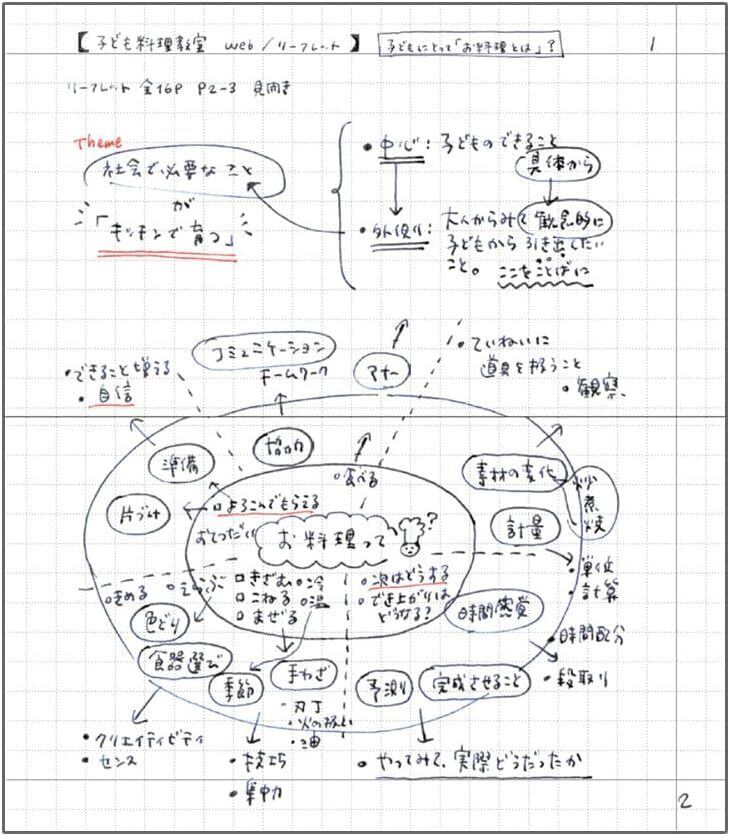 【子ども料理教室 web/リーフレット】 子どもにとって「お料理とは」?
1
リーフレット 全16P P2-3 見開き
Theme
社会で必要なこと
が
「キッチンで育つ」
・中心:子どものできること
具体から
・外側:大人からみて観念的に
子どもから引き出したい
こと。ここをことばに
コミュニケーション
チームワーク
マナー
・ていねいに
道具を扱うこと
・観察
・できること増える
・自信
準備
協力
食べる
素材の変化
炒
煮
焼
片づけ
よろこんでもらえる
おてつだい
お料理って?
計量
・単位
・計算
きめる
えらぶ
きざむ
冷
こねる
温
まぜる
次はどうする
でき上がりは
どうする?
時間感覚
・時間配分
・段取り
色どり
食器選び
季節
手わざ
・刃丁
・火の扱い
・油
予測
完成させること
・クリエイティビティ
・センス
・技巧
・集中力
・やってみて、実際どうだったか
2